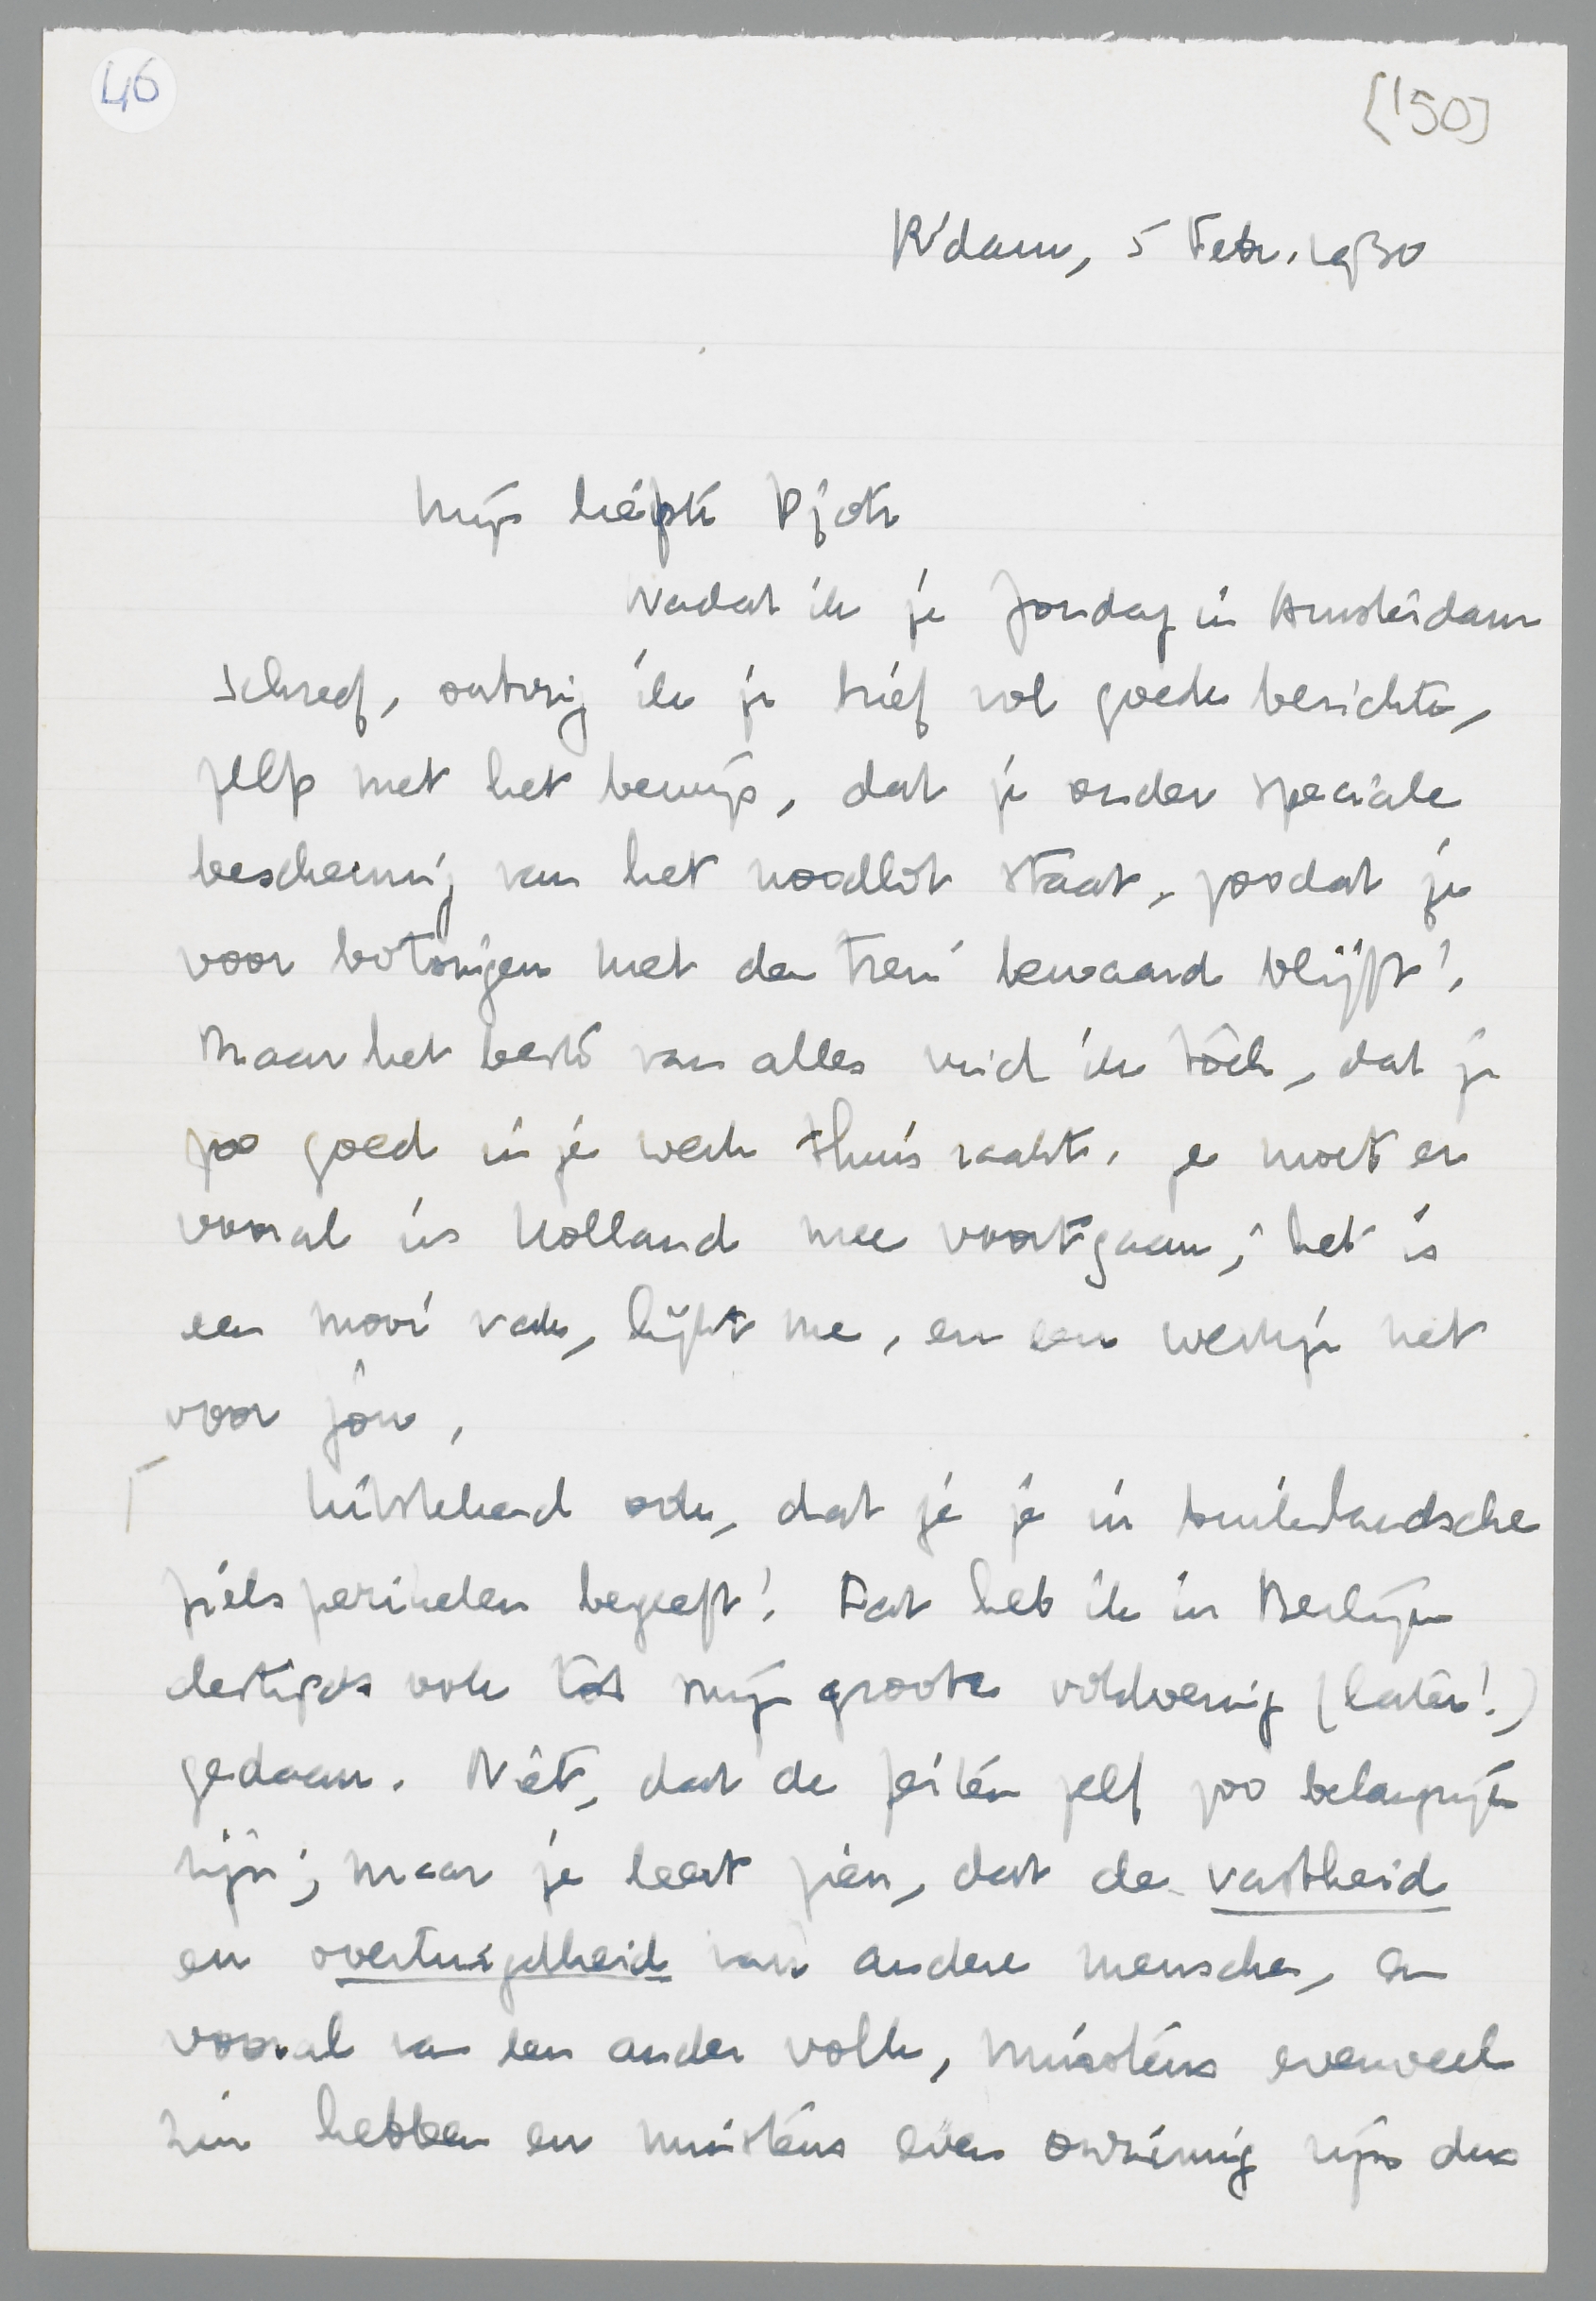 46
['50]
R'dam, 5 Febr. 1930
Mijn liefste Pjotr
Nadat ik je Zondag in Amsterdam
schreef, ontving ik je brief vol goede berichten,
zelfs met het bewijs, dat je onder speciale
bescherming van het noodlot staat, zoodat je
voor botsingen met den trein bewaard blijft!
Maar het beste van alles vind ik tòch, dat je
zoo goed in je werk thuis raakt. Je moet er
vooral in Holland mee voortgaan; het is
een mooi vak, lijkt me, en een werkje net
voor jòu.
Uitstekend ook, dat je je in buitenlandsche
zielsperikelen begeeft! Dat heb ik in Berlijn
destijds ook tot mijn groote voldoening (later!)
gedaan. Niet, dat de feiten zelf zoo belangrijk
zijn; maar je leert zien, dat de vastheid
en overtuigdheid van andere menschen, en
vooral van een ander volk, minstens evenveel
zin hebben en minstens even onzinnig zijn dus